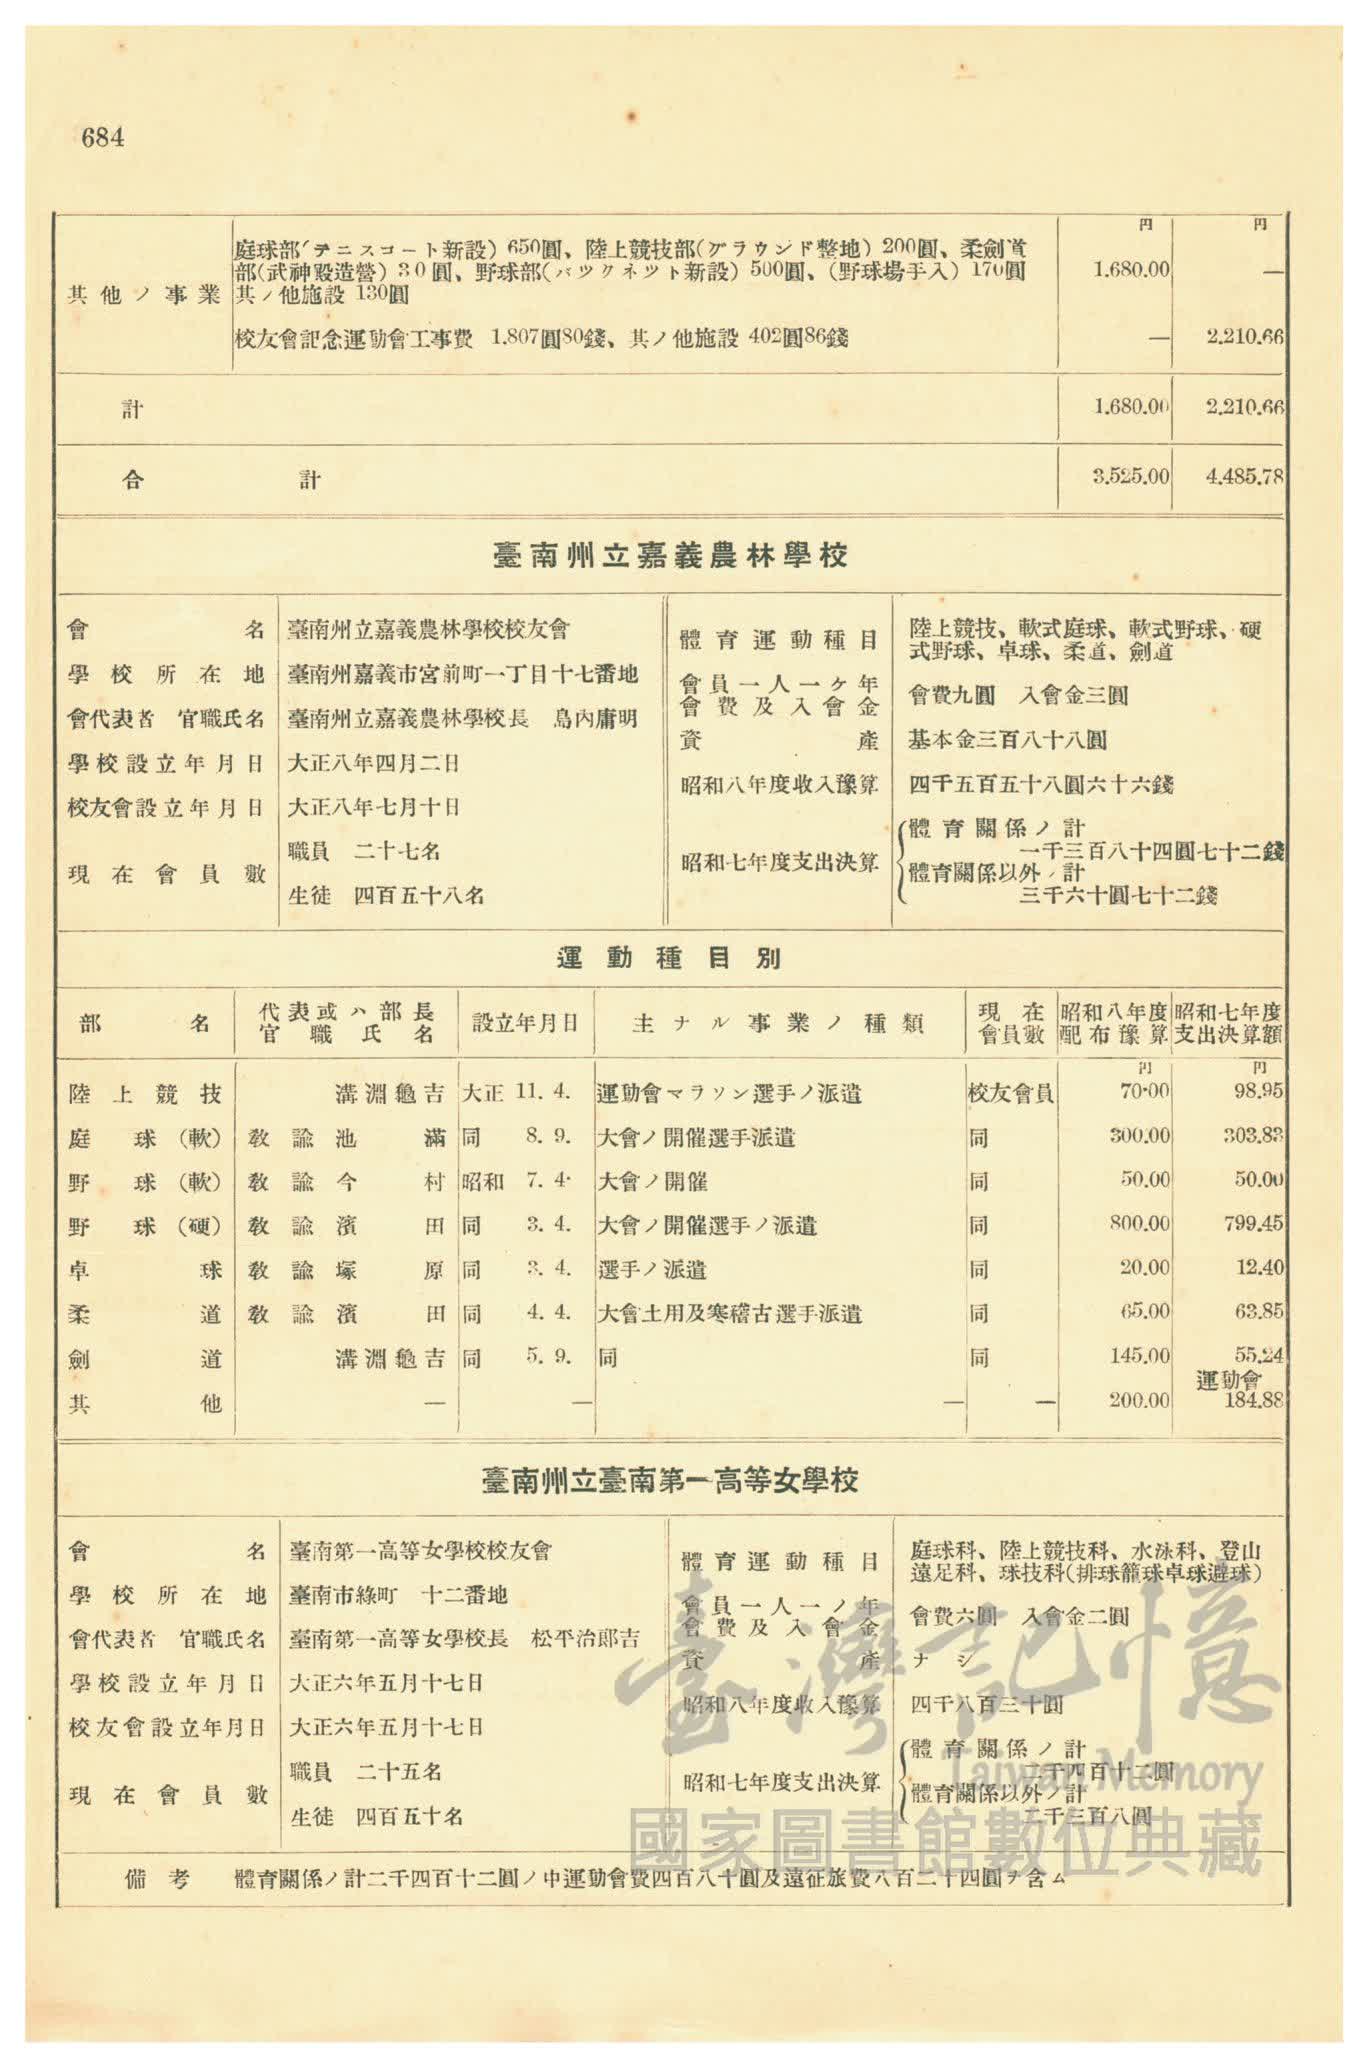 684
円 円
庭球部(テニスコート新設) 650圓、陸上競技部(グラウンド整地) 200圓、柔劍道
部(武神殿造營) 30圓、野球部(バツクネツト新設) 500圓、(野球場手入) 170圓 1.680.00 —
其他ノ事業 其ノ他施設 130圓
校友會記念運動會工事費 1.807圓80錢、其ノ他施設 402圓86錢 — 2.210.66
計 1.680.00 2.210.66
合計 3.525.00 4.485.78
臺南州立嘉義農林學校
會名 臺南州立嘉義農林學校校友會
學校所在地 臺南州嘉義市宮前町一丁目十七番地
會代表者 官職氏名 臺南州立嘉義農林學校長 島內庸明
學校設立年月日 大正八年四月二日
校友會設立年月日 大正八年七月十日
現在會員數 職員 二十七名
生徒 四百五十八名
體育運動種目 陸上競技、軟式庭球、軟式野球、硬
式野球、卓球、柔道、劍道
會員一人一ケ年
會費及入會金 會費九圓 入會金三圓
資產 基本金三百八十八圓
昭和八年度收入豫算 四千五百五十八圓六十六錢
昭和七年度支出決算 體育關係ノ計
一千三百八十四圓七十二錢
體育關係以外ノ計
三千六十圓七十二錢
運動種目別
部名 代表或ハ部長官職氏名 設立年月日 主ナル事業ノ種類 現在會員數 昭和八年度配布豫算 昭和七年度支出決算額
円 円
陸上競技 溝淵龜吉 大正 11. 4. 運動會マラソン選手ノ派遣 校友會員 70.00 98.95
庭球(軟) 教諭池滿 同 8. 9. 大會ノ開催選手派遣 同 300.00 303.83
野球(軟) 教諭今村 昭和 7. 4. 大會ノ開催 同 50.00 50.00
野球(硬) 教諭濱田 同 3. 4. 大會ノ開催選手ノ派遣 同 800.00 799.45
卓球 教諭塚原 同 3. 4. 選手ノ派遣 同 20.00 12.40
柔道 教諭濱田 同 4. 4. 大會土用及寒稽古選手派遣 同 65.00 63.85
劍道 溝淵龜吉 同 5. 9. 同 同 145.00 55.24
運動會
其他 — — — — 200.00 184.88
臺南州立臺南第一高等女學校
會名 臺南第一高等女學校校友會
學校所在地 臺南市綠町 十二番地
會代表者 官職氏名 臺南第一高等女學校長 松平治郎吉
學校設立年月日 大正六年五月十七日
校友會設立年月日 大正六年五月十七日
現在會員數 職員 二十五名
生徒 四百五十名
體育運動種目 庭球科、陸上競技科、水泳科、登山
遠足科、球技科(排球籠球卓球避球)
會員一人一ノ年
會費及入會金 會費六圓 入會金二圓
資產 ナシ
昭和八年度收入豫算 四千八百三十圓
昭和七年度支出決算 體育關係ノ計
二千四百十二圓
體育關係以外ノ計
二千三百八圓
備考 體育關係ノ計二千四百十二圓ノ中運動會費四百八十圓及遠征旅費八百二十四圓ヲ含ム
臺灣記憶
Taiwan Memory
國家圖書館數位典藏